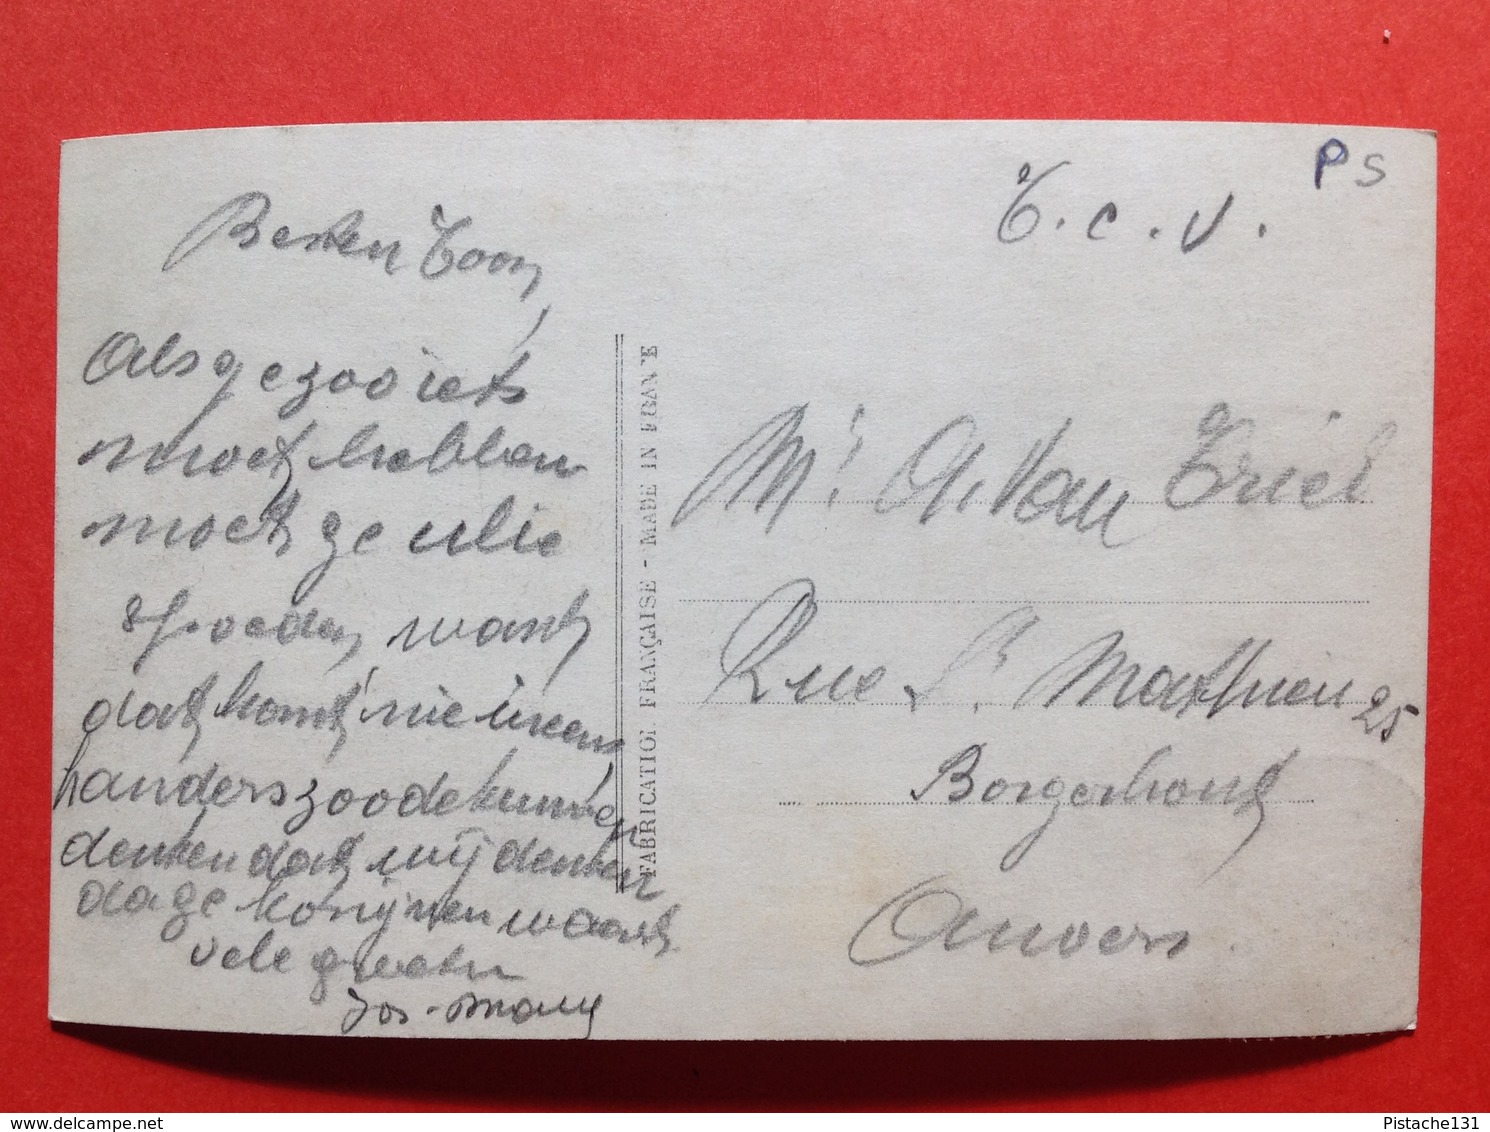 Besten Toon,
Als ge zoo iets
moet hebben
moet ge ulie
spoeden, want
dat komt nie ineens
handers zoo de kunnen
denken dat wij denken
da ge konijnen waart
vele groeten
Jos - Mary
FABRICATION FRANÇAISE - MADE IN FRANCE
PS
T. C. V.
Mr. A. Van Triel
Rue St. Mathieu 25
Borgerhout
Anvers
Pistache131